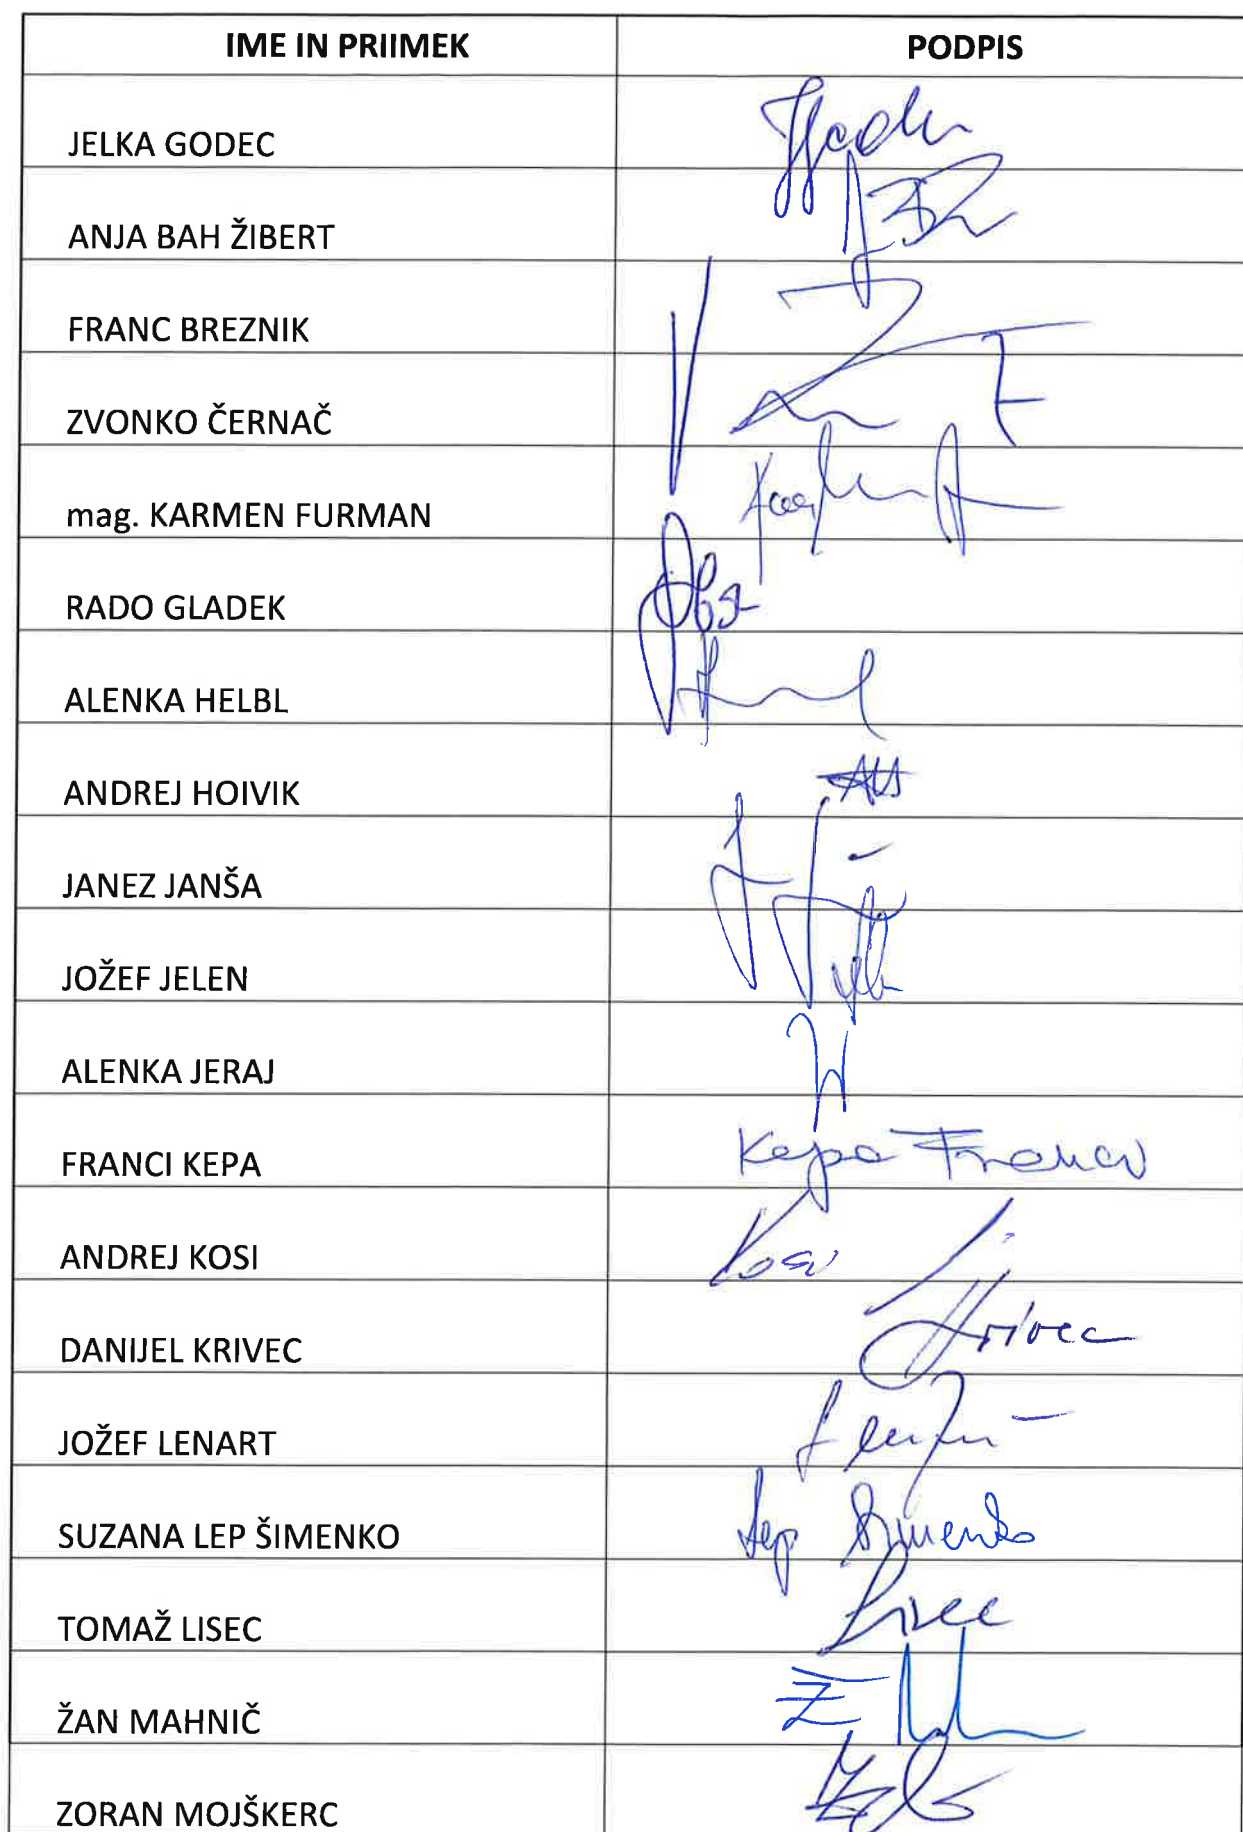 IME IN PRIIMEK PODPIS
JELKA GODEC
ANJA BAH ŽIBERT
FRANC BREZNIK
ZVONKO ČERNAČ
mag. KARMEN FURMAN
RADO GLADEK
ALENKA HELBL
ANDREJ HOIVIK
JANEZ JANŠA
JOŽEF JELEN
ALENKA JERAJ
FRANCI KEPA Kepa Franci
ANDREJ KOSI Kosi
DANIJEL KRIVEC Krivec
JOŽEF LENART
SUZANA LEP ŠIMENKO Lep Šimenko
TOMAŽ LISEC Lisec
ŽAN MAHNIČ
ZORAN MOJŠKERC